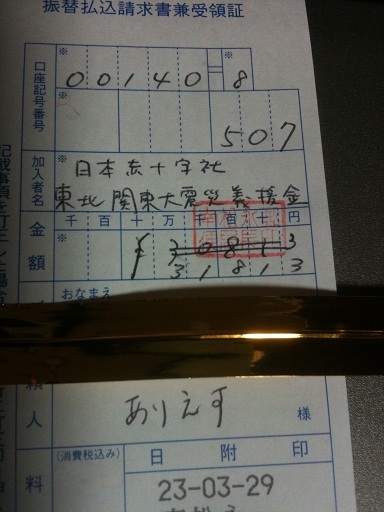 振替払込請求書兼受領証
口座記号番号
※ 00140 ※ 8
※ 507
加入者名
※ 日本赤十字社
東北関東大震災義援金
金額
千 百 十 万 千 百 十 円
※
31813
おなまえ
人
ありえす
様
料
(消費税込み)
日 附 印
23-03-29